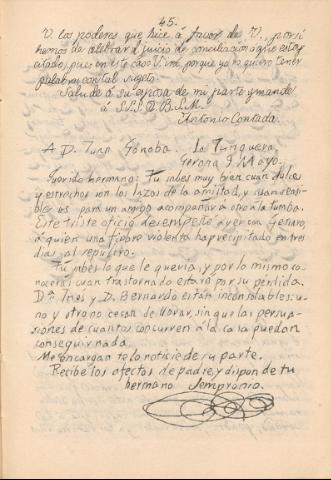 45.
V. los poderes que hice á favor de V., por si
hemos de celebrar el juicio de conciliacion á que estoy
citado, pues en este caso V. irá, porque ya no quiero tener
palabras con tal sugeto.
Salude á su esposa de mi parte y mande
á S.S.S.Q.B.S.M.
Antonio Contada.
A D. Juan Górroba. La Junquera.
Gerona 9 Mayo.
Querido hermano: Tu sabes muy bien cuan dulces
y estrechos son los lazos de la amistad, y cuan sensi-
ble es para un amigo acompañar á otro á la tumba.
Este triste oficio desempeñé ayer con Genaro,
á quien una fiebre violenta ha precipitado en tres
dias al sepulcro.
Tu sabes lo que le queria, y por lo mismo co-
nocerás cuan trastornado estaré por su pérdida.
Dª Inés y D. Bernardo están inconsolables: u-
no y otro no cesan de llorar, sin que las persua-
siones de cuantos concurren á la casa puedan
conseguir nada.
Me encargan te lo noticie de su parte.
Recibe los afectos de padre, y dispon de tu
hermano Sempronio.